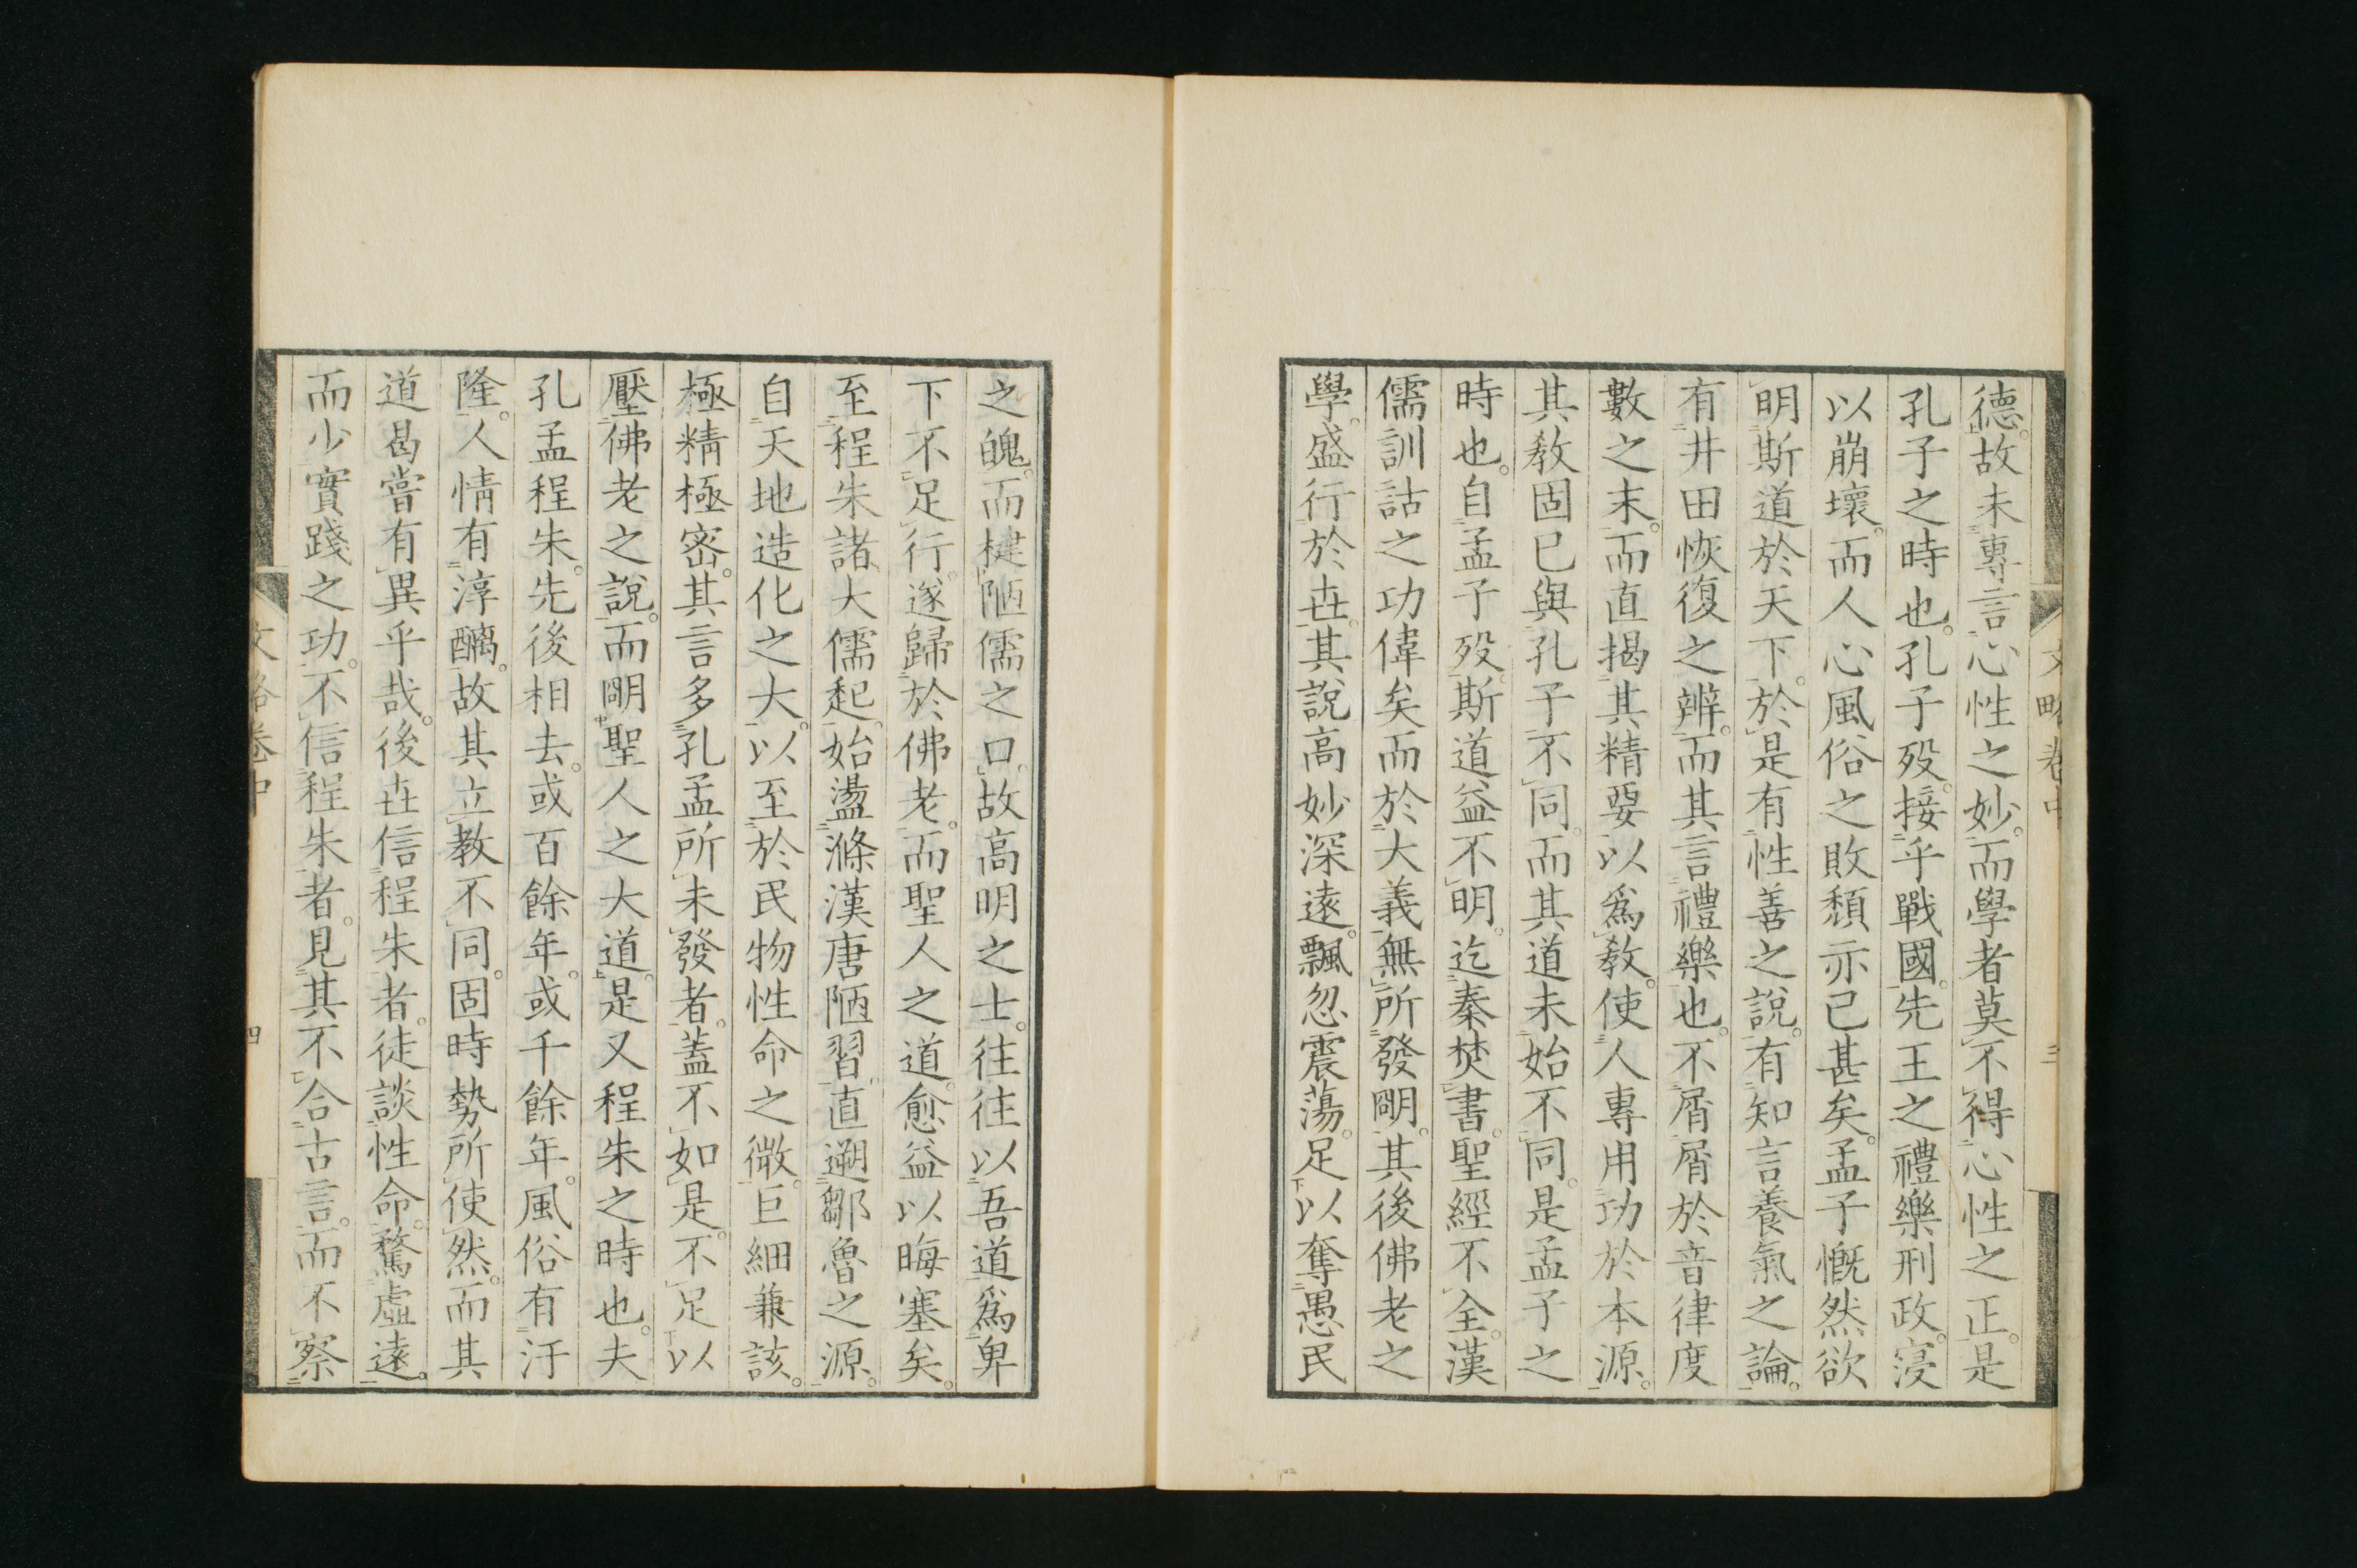 文略卷中
三
德。故未專言心性之妙。而學者莫不得心性之正。是
孔子之時也。孔子歿。接乎戰國。先王之禮樂刑政。寖
以崩壞。而人心風俗之敗頹亦已甚矣。孟子慨然欲
明斯道於天下。於是有性善之說。有知言養氣之論。
有井田恢復之辨。而其言禮樂也。不屑屑於音律度
數之末。而直揭其精要以爲教。使人專用功於本源。
其教固已與孔子不同。而其道未始不同。是孟子之
時也。自孟子歿。斯道益不明。迄秦焚書。聖經不全。漢
儒訓詁之功偉矣而於大義無所發明。其後佛老之
學。盛行於世。其說高妙深遠。飄忽震蕩。足以奪愚民
之魄。而楗陋儒之口。故高明之士。往往以吾道爲卑
下不足行。遂歸於佛老。而聖人之道。愈益以晦塞矣。
至程朱諸大儒起。始盪滌漢唐陋習。直遡鄒魯之源。
自天地造化之大。以至於民物性命之微。巨細兼該。
極精極密。其言多孔孟所未發者。蓋不如是。不足以
壓佛老之說。而明聖人之大道。是又程朱之時也。夫
孔孟程朱。先後相去。或百餘年。或千餘年。風俗有汙
隆。人情有淳醨。故其立教不同。固時勢所使然。而其
道曷嘗有異乎哉。後世信程朱者。徒談性命。騖虛遠。
而少實踐之功。不信程朱者。見其不合古言。而不察
文略卷中
四